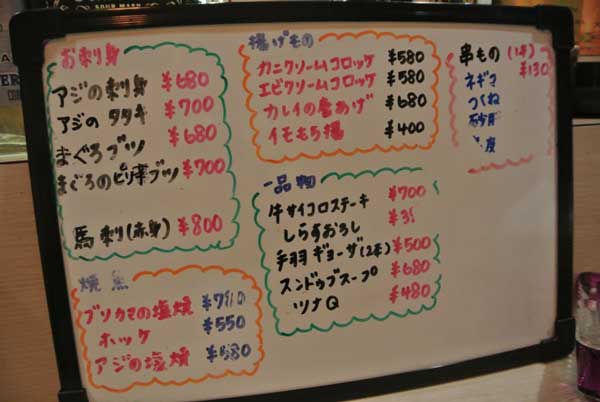 SOUR MASH
お刺身
アジの刺身 ¥680
アジのタタキ ¥700
まぐろブツ ¥680
まぐろのピリ辛ブツ ¥700
馬刺(赤身) ¥800
焼魚
ブリカマの塩焼 ¥780
ホッケ ¥550
アジの塩焼 ¥580
揚げもの
カニクリームコロッケ ¥580
エビクリームコロッケ ¥580
カレイの唐あげ ¥680
イモもち揚 ¥400
一品物
牛サイコロステーキ ¥700
しらすおろし
手羽ギョーザ(2本) ¥500
スンドゥブスープ ¥680
ツナQ ¥480
串もの(1本)
¥130
ネギマ
つくね
砂肝
皮